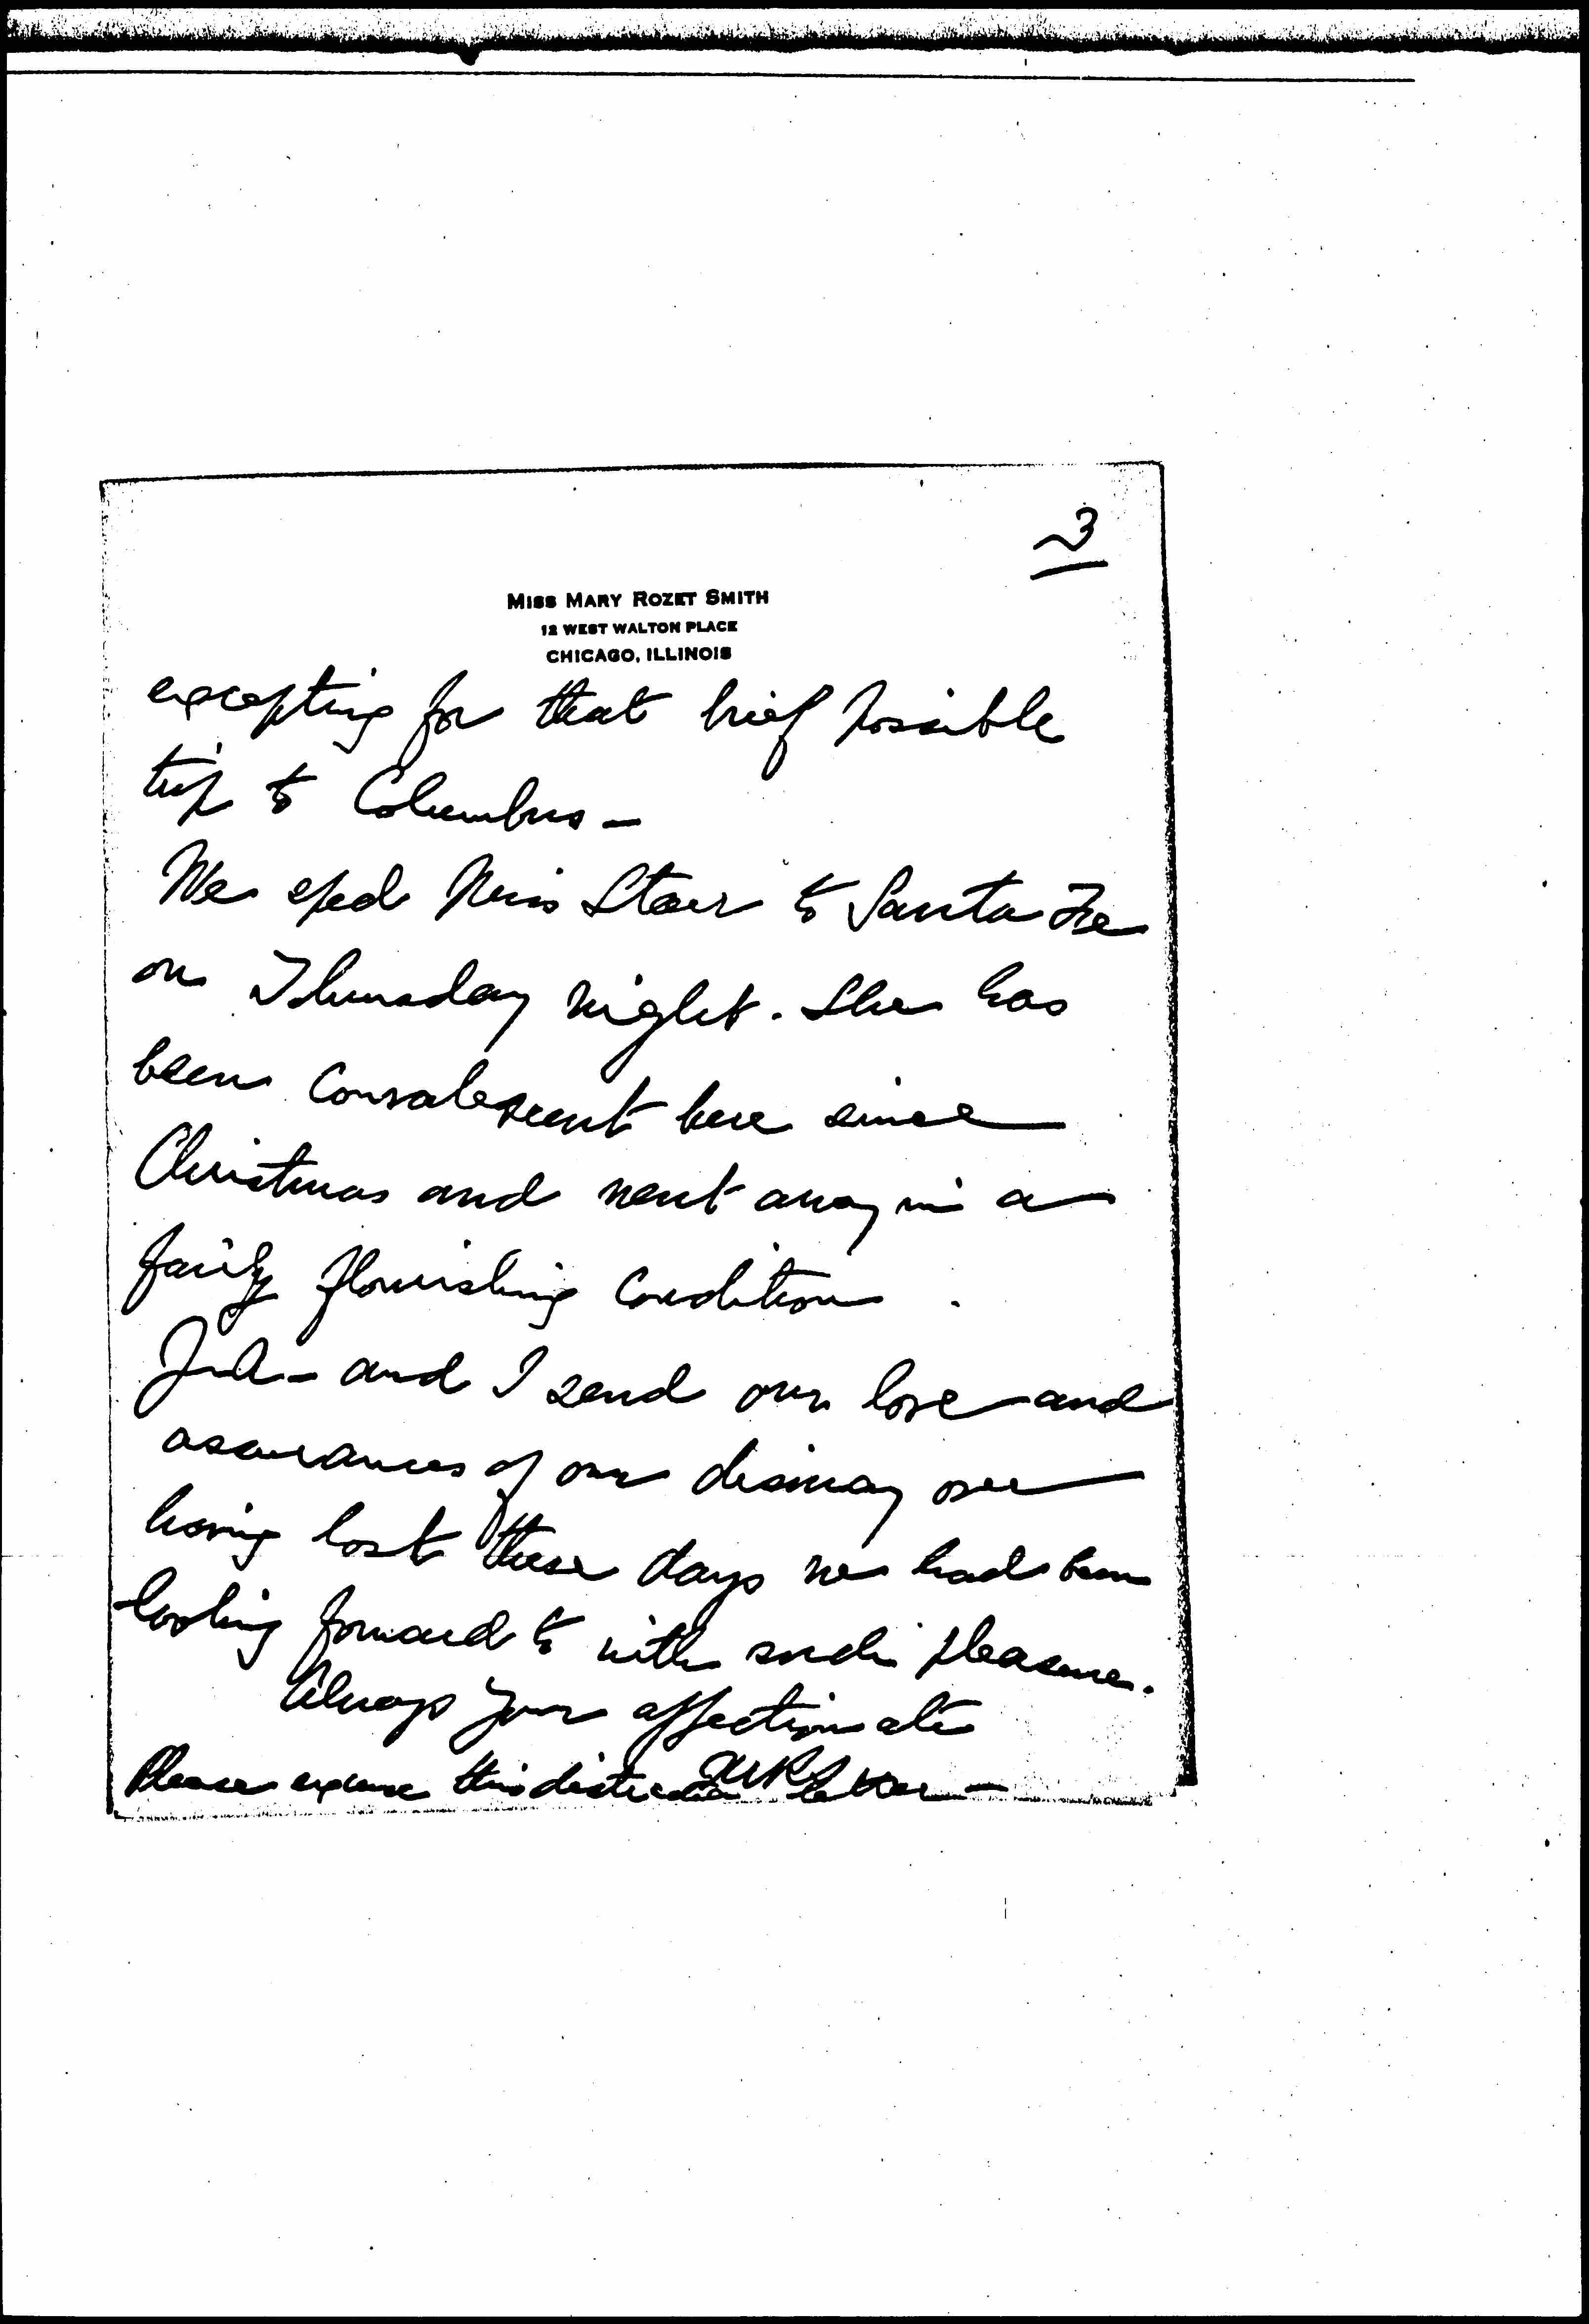 3
MISS MARY ROZET SMITH
12 WEST WALTON PLACE
CHICAGO, ILLINOIS
excepting for that brief possible
trip to Columbus –
We sped Miss Starr to Santa Fe
on Thursday night. She has
been convalescent here since
Christmas and went away in a
fairly flourishing condition .
J. A – and I send our love and
assurances of our dismay over
having lost these days we had been
looking forward to with such pleasure.
Always your affectionate
MRS
Please excuse this distracted letter –